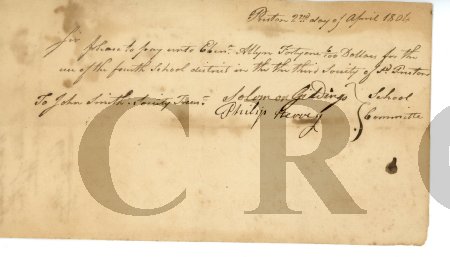 Preston 2nd day of April 180
Sir please to pay unto Eben.r Allyn Fortyone 100 Dollars for the
use of the fourth School district in the the third Society of Sd Preston
To John Smith Society Trear.
Solomon Giddings
Philip Hervey
School
Committe
CRG